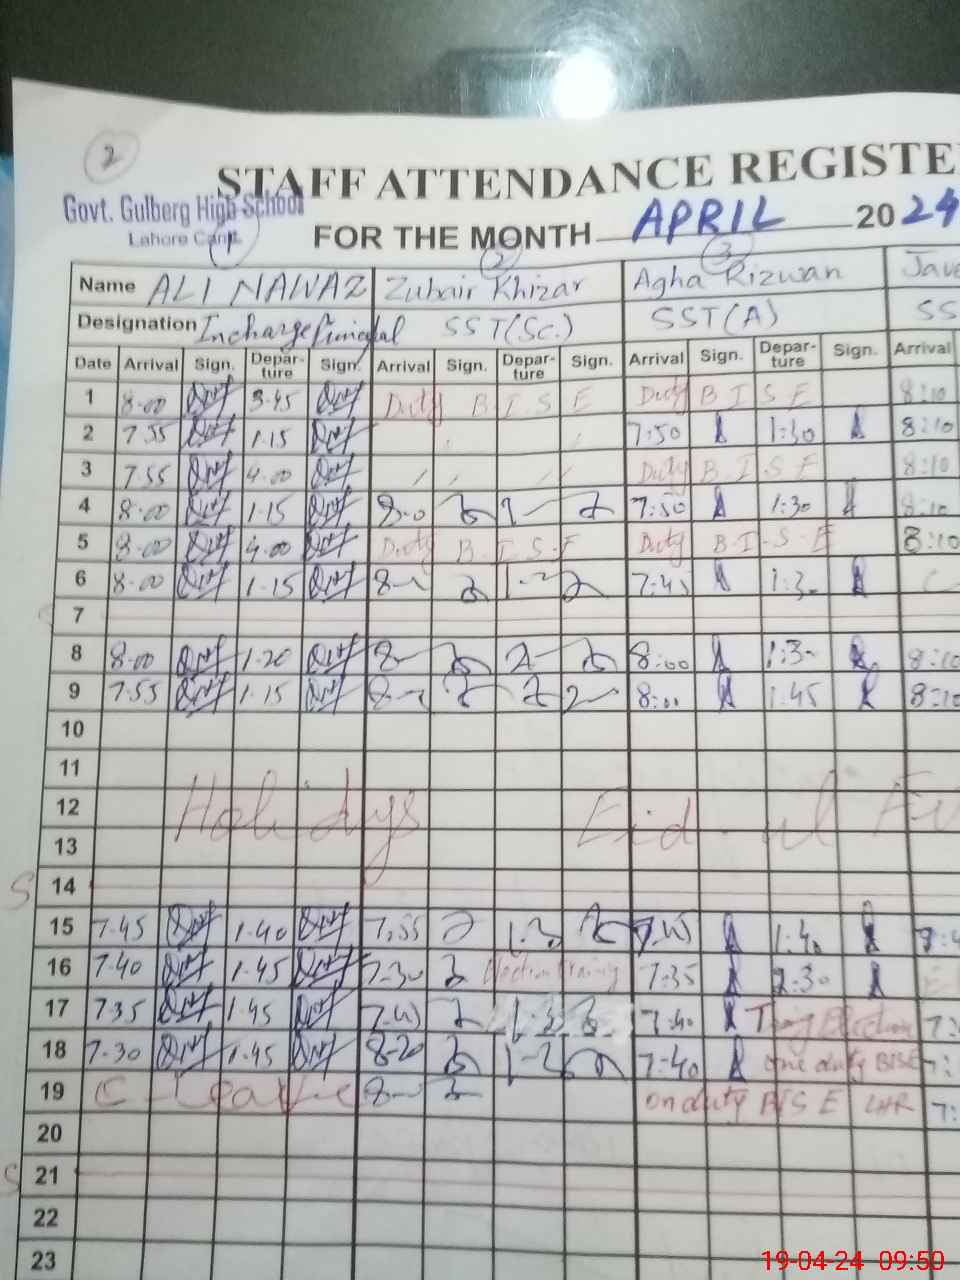 2
STAFF ATTENDANCE REGISTE
Govt. Gulberg High School
Lahore Cantt.
FOR THE MONTH APRIL 2024
1 2 3
Name ALI NAWAZ Zubair Khizar Agha Rizwan Jave
Designation Incharge SST(Sc.) SST(A) SS
Date Arrival Sign. Depar-ture Sign. Arrival Sign. Depar-ture Sign. Arrival Sign. Depar-ture Sign. Arrival
1 8.00 3.45 Duty B I S E Duty B I S E 8:10
2 7.55 1.15 7:50 1:30 8:10
3 7.55 4.00 Duty B I S E 8:10
4 8.00 1.15 8-0 7:50 1:30 8:10
5 8.00 4.00 Duty B.I.S.E Duty B.I.S.E 8:10
6 8.00 1.15 8- 7:45 1:3-
7
8 8.00 1.20 8- 8:00 1:3- 8:10
9 7.55 1.15 8- 8:00 1:45 8:10
10
11
12 Holidays Eid ul
13
S 14
15 7.45 1.40 7,55 1.3 7.45 1:40
16 7.40 1.45 7-30 Election training 7:35 2:30
17 7.35 1.45 7.40 1-3 7:40 Election 7:
18 7.30 1.45 8-20 7:40 one duty BISE 7:
19 C-leave 8- on duty BISE LHR 7:
20
S 21
22
23
19-04-24 09:50